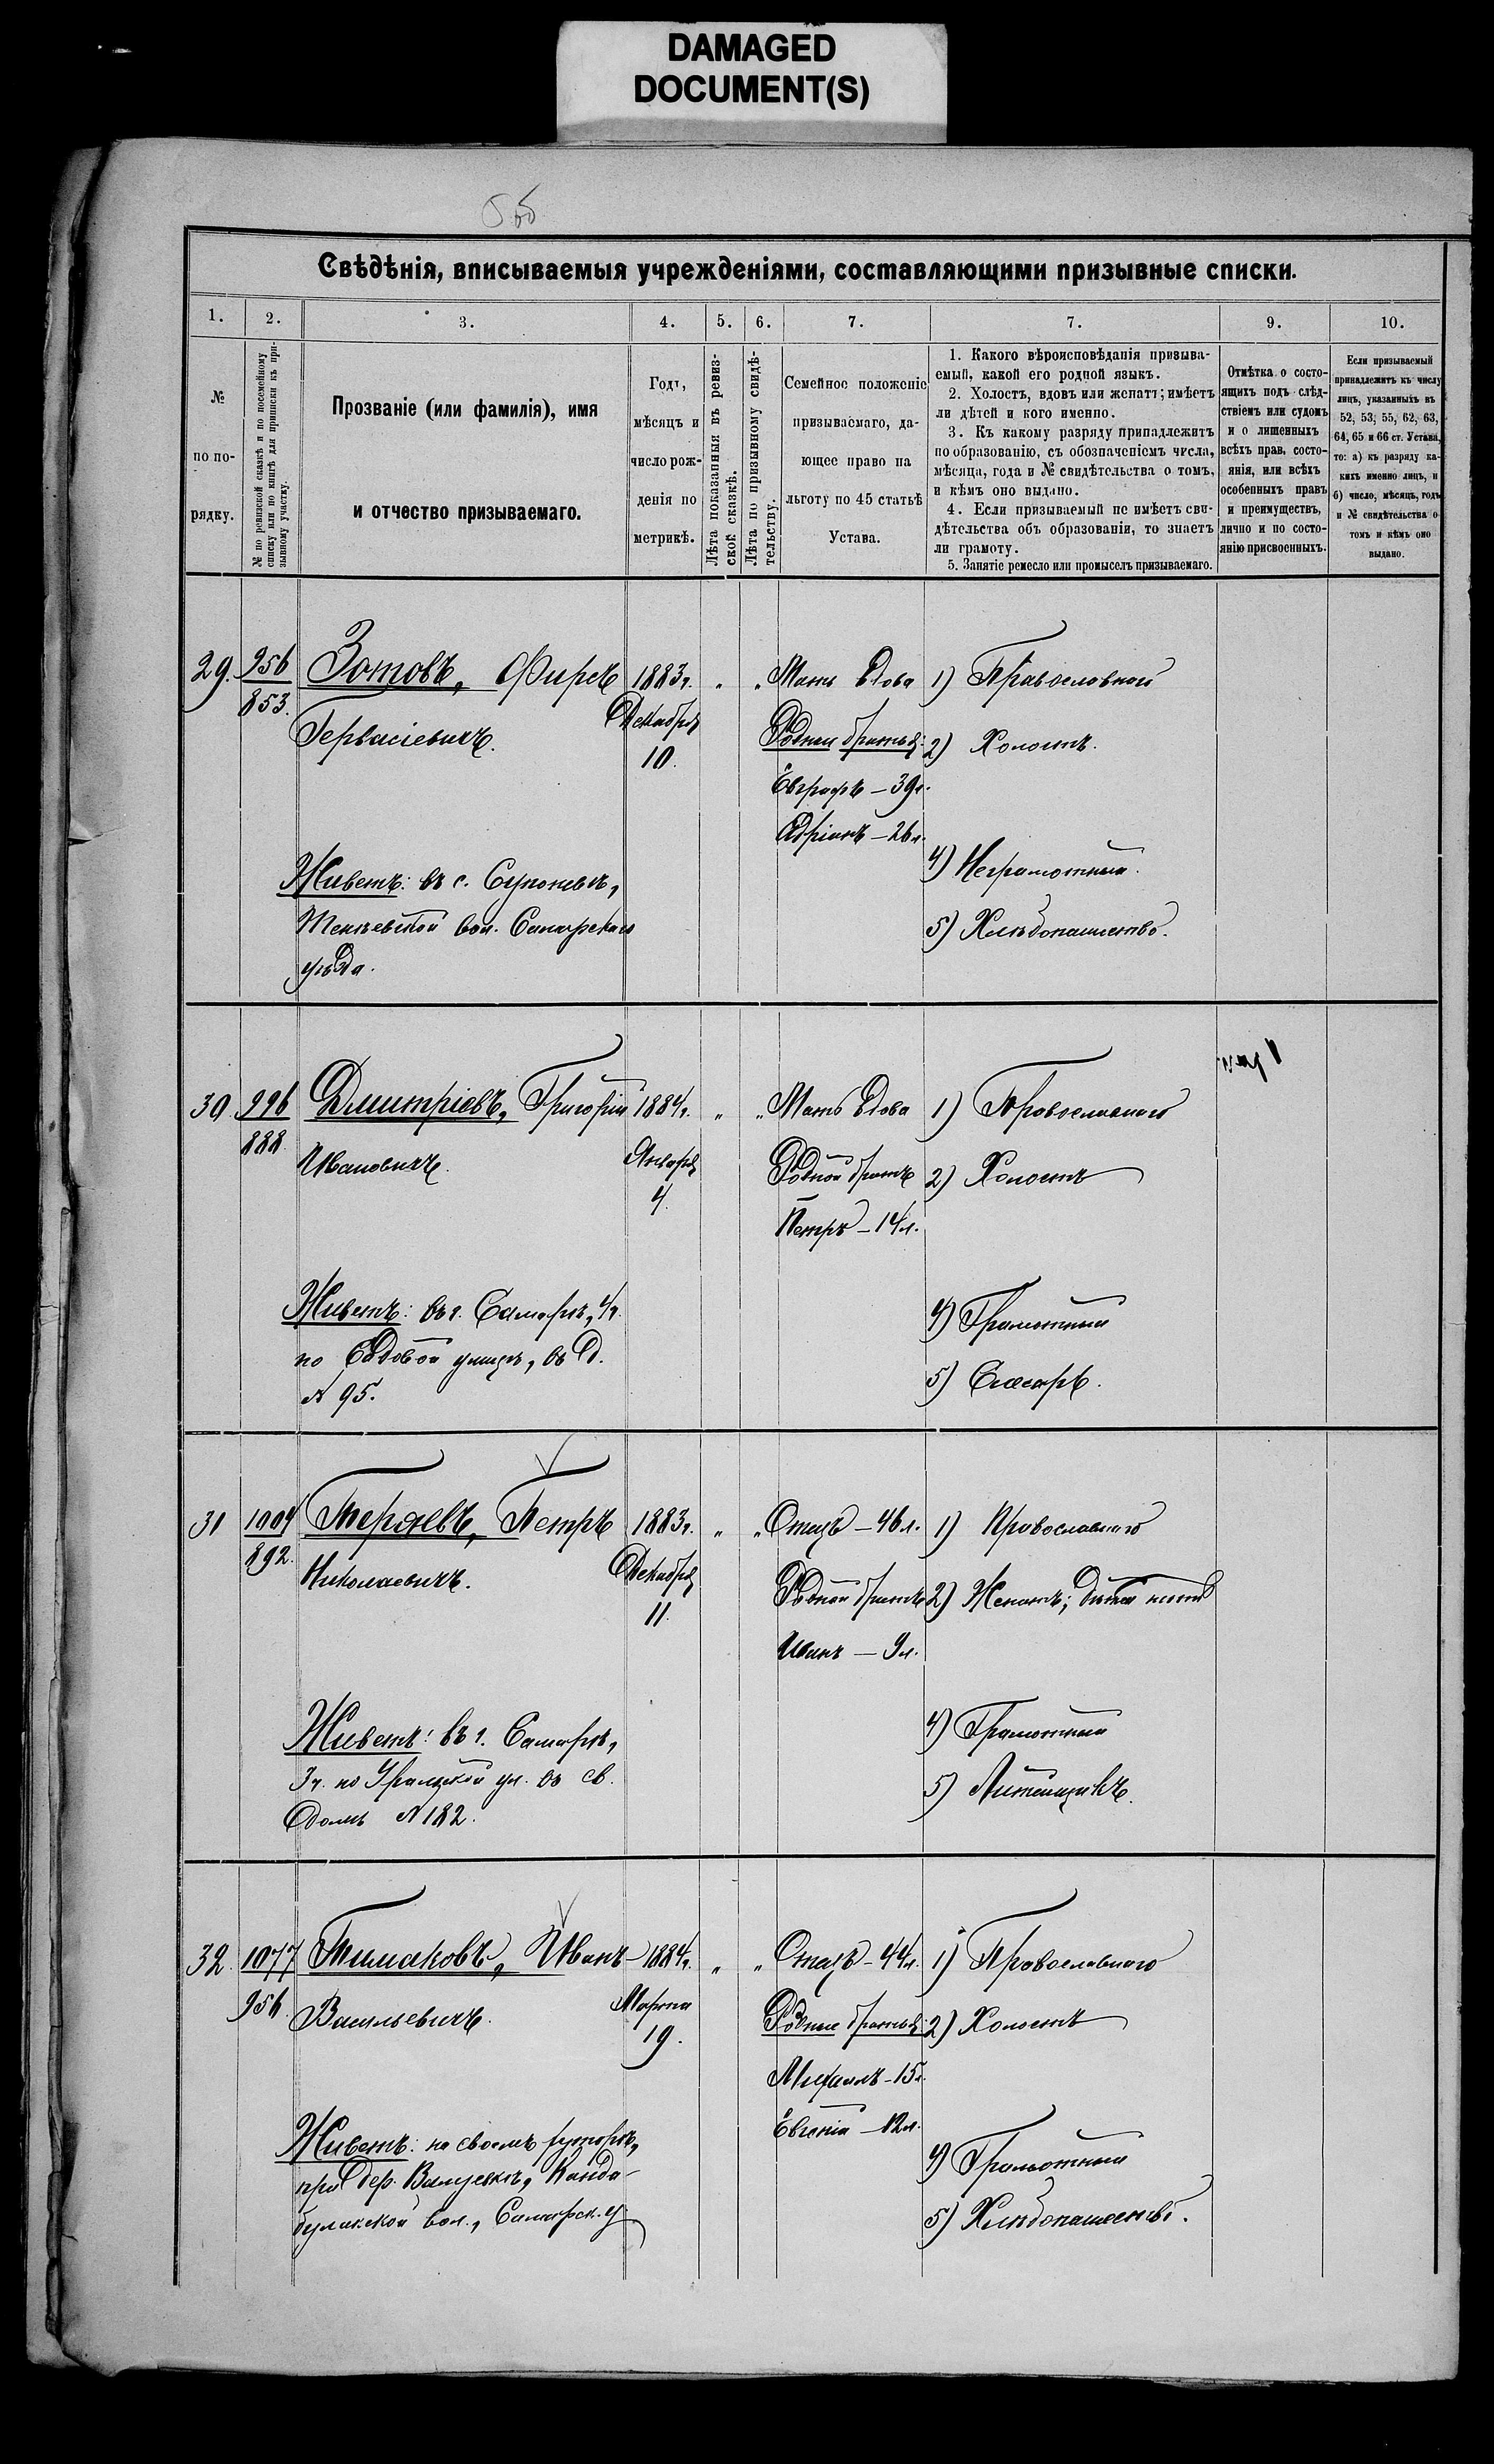 DAMAGED
DOCUMENT(S)
Свѣдѣнія, вписываемыя учрежденіями, составляющими призывные списки.
1.
2.
3.
4.
5.
6.
7.
7.
9.
10.
№
по по-
рядку.
№ по ревизской сказкѣ и по посемейному
списку или по книгѣ для приписки къ при-
зывному участку.
Прозваніе (или фамилія), имя
и отчество призываемаго.
Годъ,
мѣсяцъ и
число рож-
денія по
метрикѣ.
Лѣта показанныя въ ревиз-
ской сказкѣ.
Лѣта по призывному свидѣ-
тельству.
Семейное положеніе
призываемаго, да-
ющее право на
льготу по 45 статьѣ
Устава.
1. Какого вѣроисповѣданія призыва-
емый, какой его родной языкъ.
2. Холостъ, вдовъ или женатъ; имѣетъ
ли дѣтей и кого именно.
3. Къ какому разряду принадлежитъ
по образованію, съ обозначеніемъ числа,
мѣсяца, года и № свидѣтельства о томъ,
и кѣмъ оно выдано.
4. Если призываемый не имѣетъ сви-
дѣтельства объ образованіи, то знаетъ
ли грамоту.
5. Занятіе ремесло или промыселъ призываемаго.
Отмѣтка о состо-
ящихъ подъ слѣд-
ствіемъ или судомъ
и о лишенныхъ
всѣхъ прав, состо-
янія, или всѣхъ
особенныхъ правъ
и преимуществъ,
лично и по состо-
янію присвоенныхъ.
Если призываемый
принадлежитъ къ числу
лицъ, указанныхъ въ
52, 53, 55, 62, 63,
64, 65 и 66 ст. Устава,
то: а) къ разряду ка-
кихъ именно лицъ, и
б) число, мѣсяцъ, годъ
и № свидѣтельства о
томъ и кѣмъ оно
выдано.
29. 956 Зотовъ, Фирсъ 1883г. " " Мать вдова 1) Православной
853. Гервасіевичъ. Декабря Родные братья: 2) Холостъ.
10.
Евграфъ – 39л.
Адріанъ – 26л.
4) Неграмотный.
Живетъ: въ с.
вол. Самарскаго
5) Хлѣбопашество.
уѣзда.
30 996 Дмитріевъ, Григорій 1884г. " " Мать вдова 1) Православнаго
888. Ивановичъ. Января Родной братъ 2) Холостъ
4.
Петръ – 14л.
Живетъ: въ г. Самарѣ, 4ч.
4) Грамотный
по Садовой улицѣ, въ д.
5) Слесарь.
№ 95.
31 1004 Теряевъ, Петръ 1883г. " " Отецъ – 46л. 1) Православнаго
892. Николаевичъ. Декабря Родной братъ 2) Женатъ; дѣтей нѣтъ
11.
Иванъ – 9л.
Живетъ: въ г. Самарѣ,
4) Грамотный
3ч. по Уральской ул. въ св.
5) Литейщикъ.
домѣ № 182.
32. 1077 Тимаковъ, Иванъ 1884г. " " Отецъ – 44л. 1) Православнаго
956. Васильевичъ. Марта Родные братья: 2) Холостъ
19.
Михаилъ – 15л.
Евгеній – 12л.
Живетъ: на своемъ хуторѣ,
4) Грамотный
при дер. Валуевкѣ, Канда-
булакской вол., Самарск. у.
5) Хлѣбопашество.